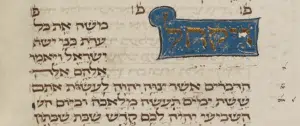 פ פ
ויקהל
משה את כל
עדת בני יש
ישראל ויאמר
אלהם אלה
הדברים אשר צוה יהוה לעשות אתם
ששת ימים תעשה מלאכה וביום
השביעי יהיה לכם קדש שבת שבתון